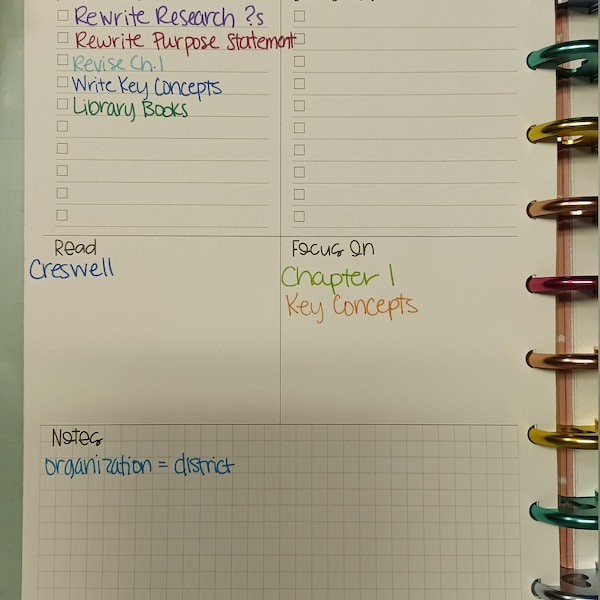 Rewrite Research ?s
Rewrite Purpose Statement
Revise Ch. 1
Write Key Concepts
Library Books
Read
Creswell
Focus On
Chapter 1
Key Concepts
Notes
organization = district